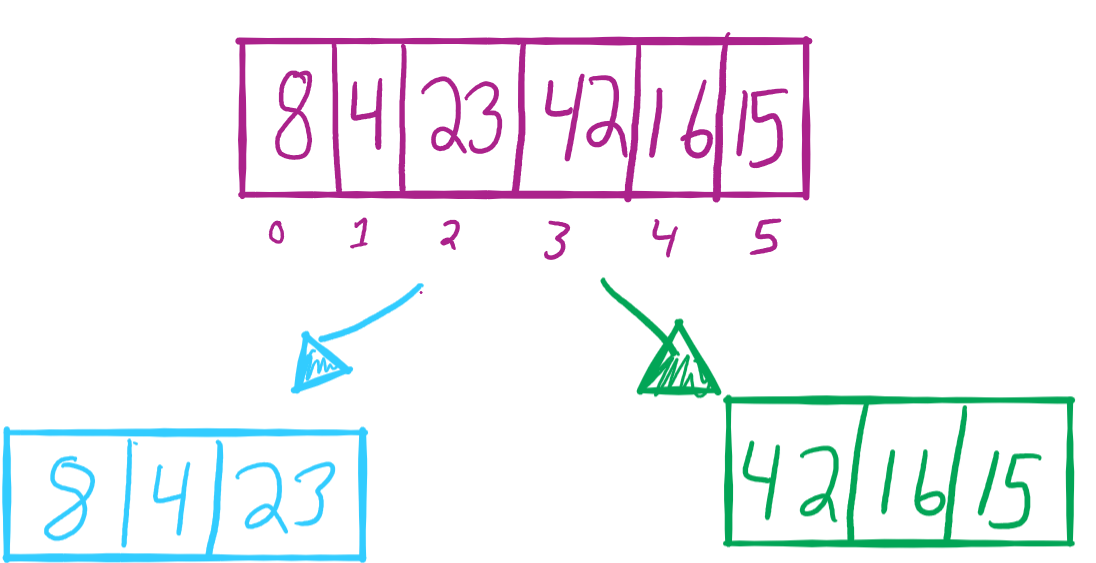 8 4 23 42 16 15
0 1 2 3 4 5
8 4 23
42 16 15